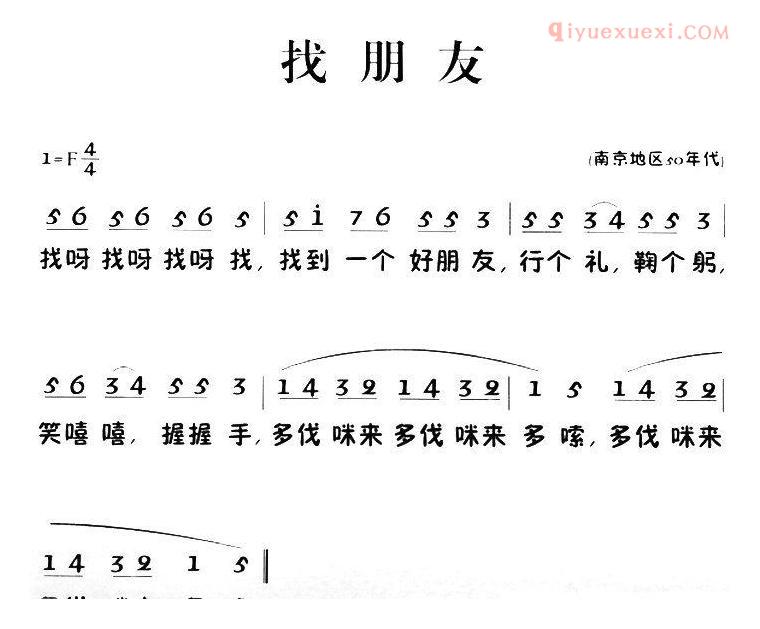 qiyuexuexi.COM
找朋友
1=F 4/4 (南京地区50年代)
56 56 56 5 | 5i 76 55 3 | 55 34 55 3 |
找呀 找呀 找呀 找, 找到 一个 好朋 友, 行个 礼, 鞠个 躬,
56 34 55 3 | 14 32 14 32 | 1 5 14 32 |
笑嘻 嘻, 握握 手, 多伐 咪来 多伐 咪来 多 嗦, 多伐 咪来
14 32 1 5 ‖